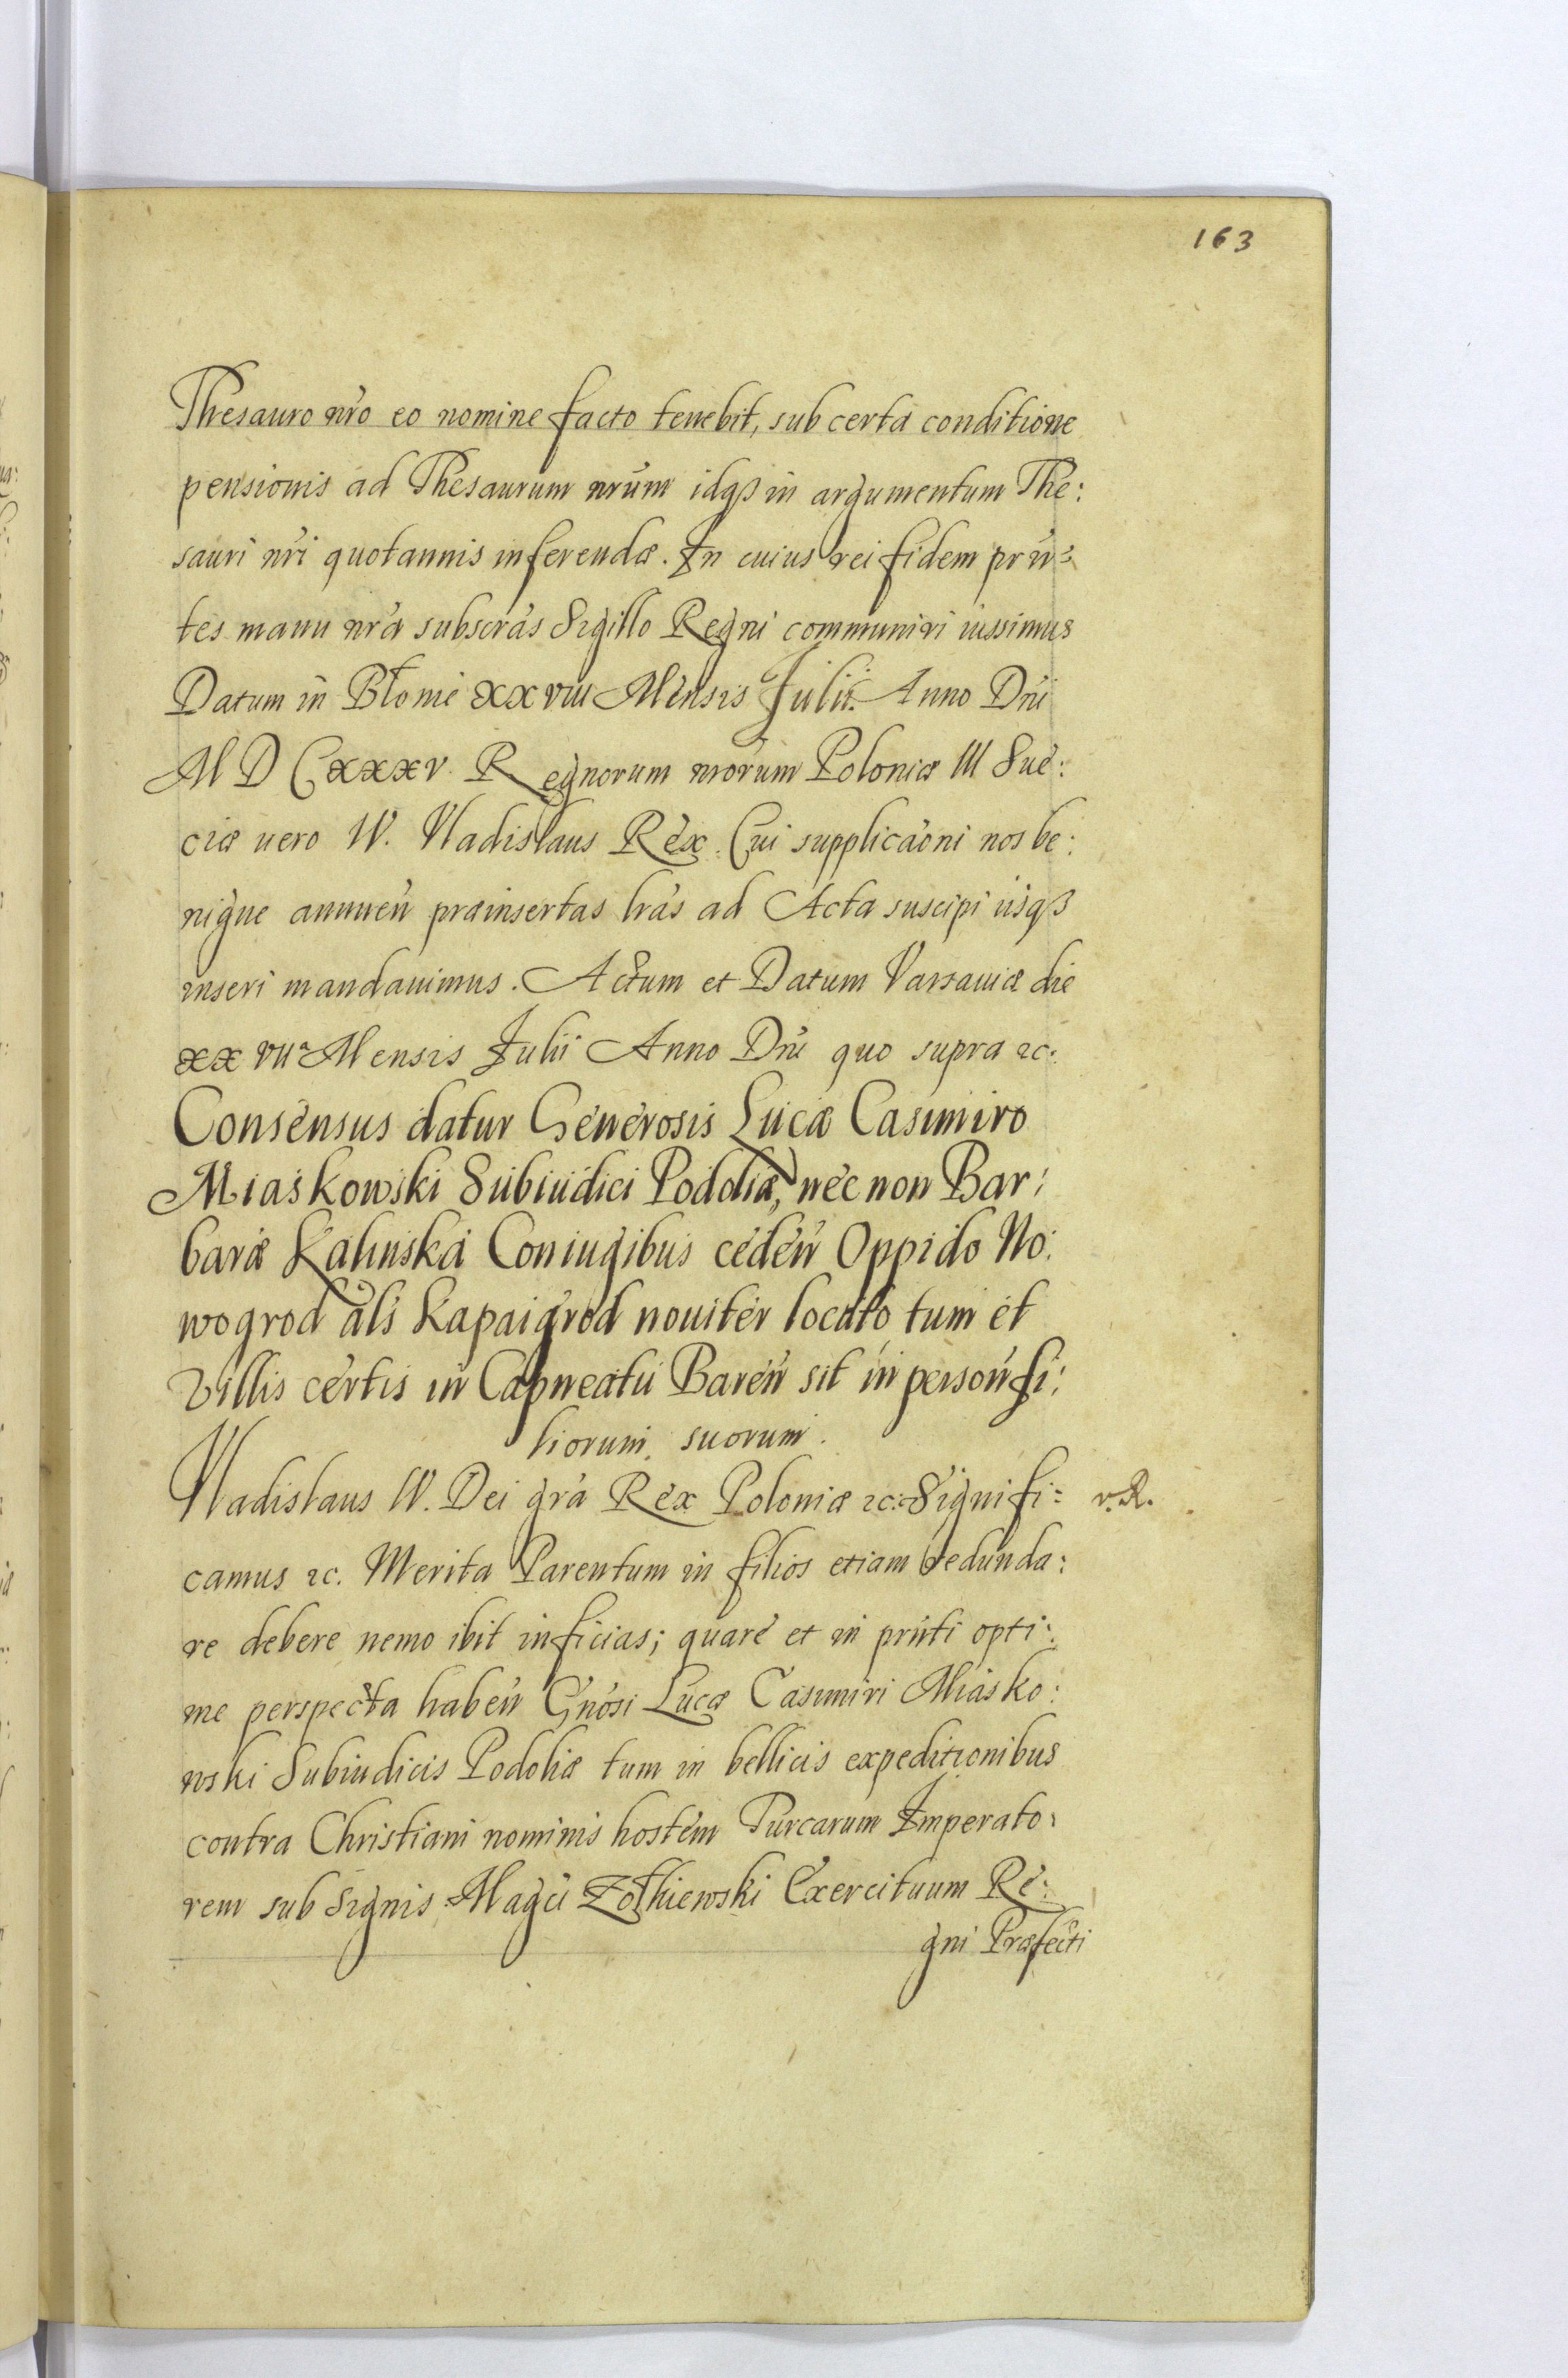 163
Thesauro nro eo nomine facto tenebit, sub certa conditione
pensionis ad Thesaurum nrum idqß in argumentum The:
sauri nri quotannis inferendæ. In cuius rei fidem prn=
tes manu nra subscras Sigillo Regni communiri iussimus
Datum in Błonie XXVIII Mensis Julii. Anno Dni
M D CXXXV. Regnorum nrorum Poloniæ III Sue:
ciæ uero IV. Vladislaus Rex. Cui supplicaoni nos be:
nigne annuen præinsertas lras ad Acta suscipi iisqß
inseri mandauimus. Actum et Datum Varsauiæ die
XXVIIª Mensis Julii Anno Dni quo supra &c:
Consensus datur Generosis Lucæ Casimiro
Miaskowski Subiudici Podoliæ, nec non Bar:
baræ Kalinska Coniugibus ceden Oppido No:
wogrod als Kapaigrod nouiter locato tum et
Villis certis in Capneatu Baren sit in person fi:
liorum suorum.
Vladislaus IV. Dei gra Rex Poloniæ &c: Signifi= v. R.
camus &c. Merita Parentum in filios etiam redunda:
re debere nemo ibit inficias; quare et in prnti opti:
me perspecta haben Gnosi Lucæ Casimiri Miasko:
wski Subiudicis Podoliæ tum in bellicis expeditionibus
contra Christiani nominis hostem Turcarum Imperato:
rem sub Signis Magci Żołkiewski Exercituum Re:
gni Præfecti